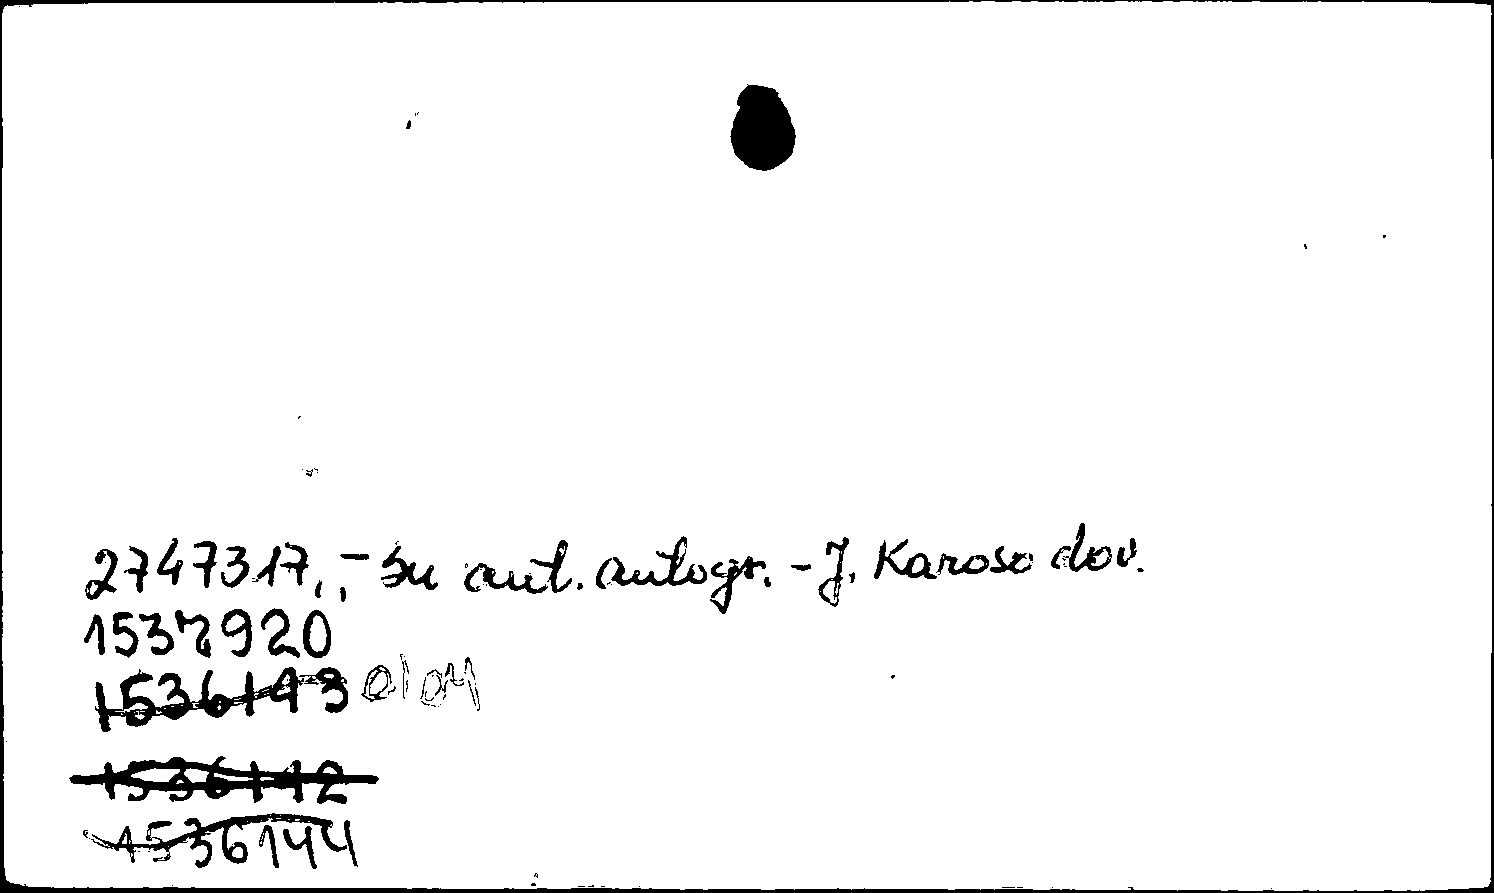 2747317, - su aut. autogr. - J. Karoso dov.
1537920
1536143
1536142
1536144